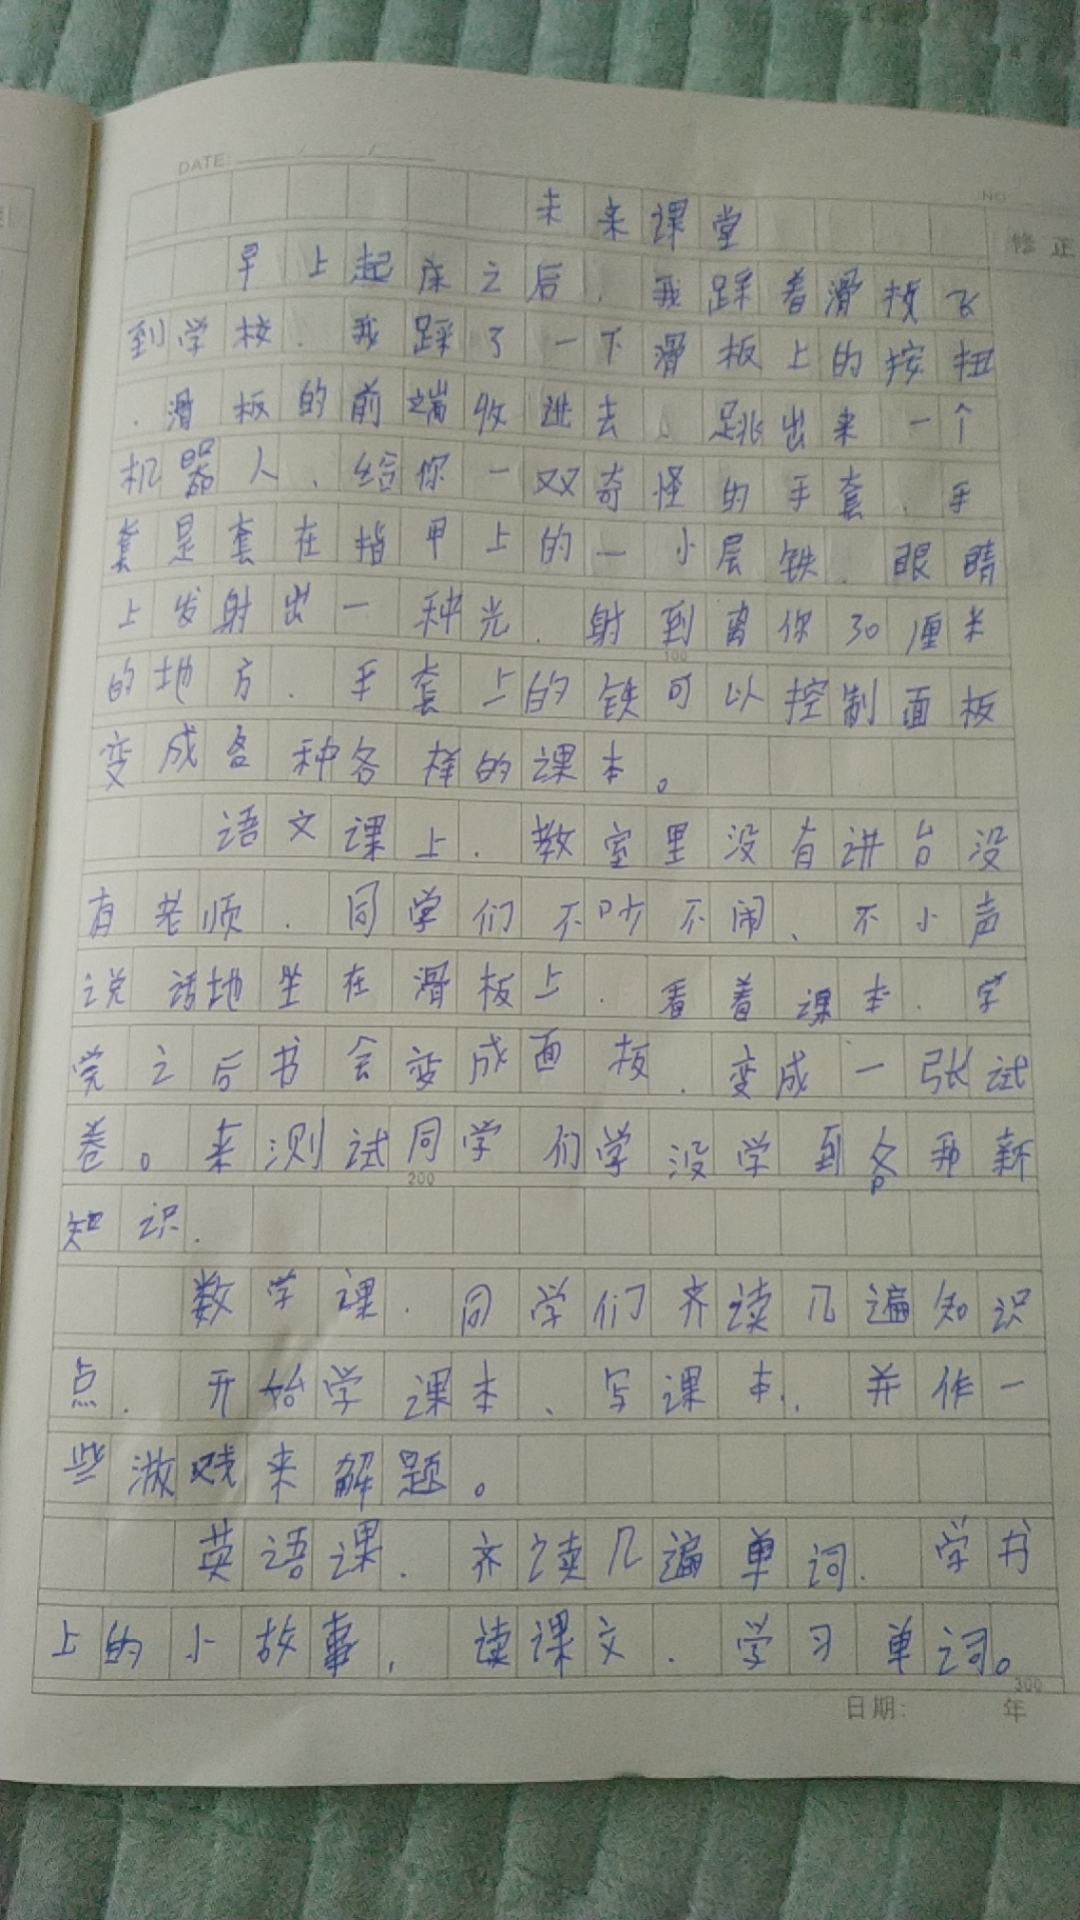 DATE: / /
NO
修正
未来课堂
早上起床之后,我踩着滑板飞
到学校,我踩了一下滑板上的按扭
,滑板的前端收进去,跳出来一个
机器人,给你一双奇怪的手套,手
套是套在指甲上的一小层铁,眼睛
上发射出一种光,射到离你30厘米
的地方,手套上的铁可以控制面板
变成各种各样的课本。
语文课上,教室里没有讲台没
有老师,同学们不吵不闹、不小声
说话地坐在滑板上,看着课本,学
完之后书会变成面板,变成一张试
卷。来测试同学们学没学到各种新
知识.
数学课,同学们齐读几遍知识
点,开始学课本、写课本,并作一
些游戏来解题。
英语课,齐读几遍单词,学书
上的小故事,读课文,学习单词。
100
200
300
日期: 年